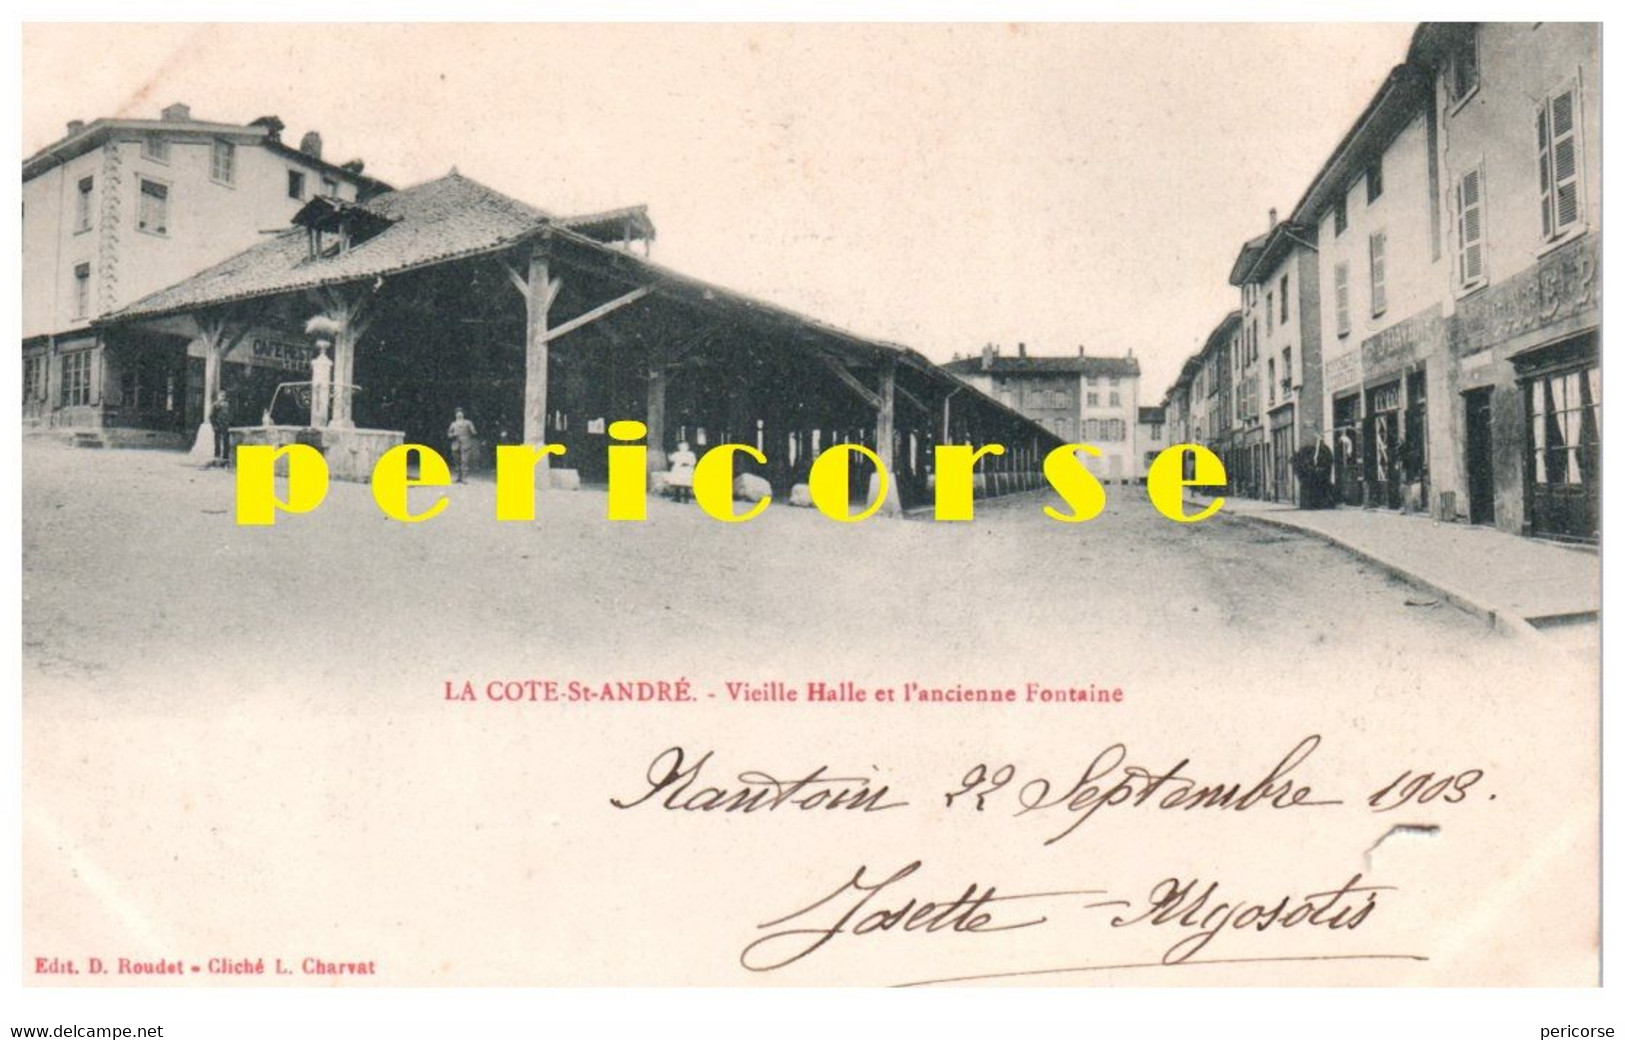 CAFE REST
pericorse
LA COTE-St-ANDRÉ. - Vieille Halle et l'ancienne Fontaine
Nantoin 22 Septembre 1903.
Josette - Myosotis
Edit. D. Roudet - Cliché L. Charvat
www.delcampe.net
pericorse